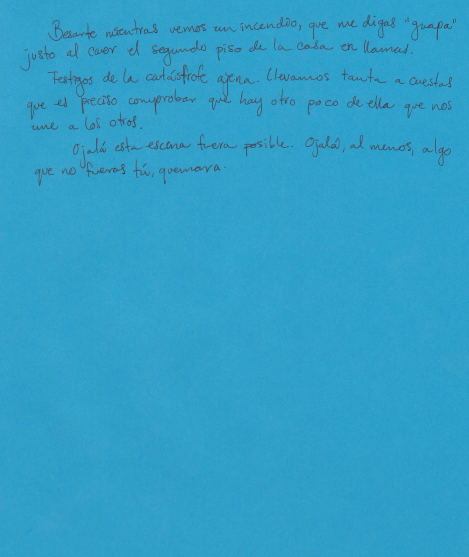 Besarte mientras vemos un incendio, que me digas "guapa"
justo al caer el segundo piso de la casa en llamas.
Testigos de la catástrofe ajena. Llevamos tanta a cuestas
que es preciso comprobar que hay otro poco de ella que nos
une a los otros.
Ojalá esta escena fuera posible. Ojalá, al menos, algo
que no fueras tú, quemara.